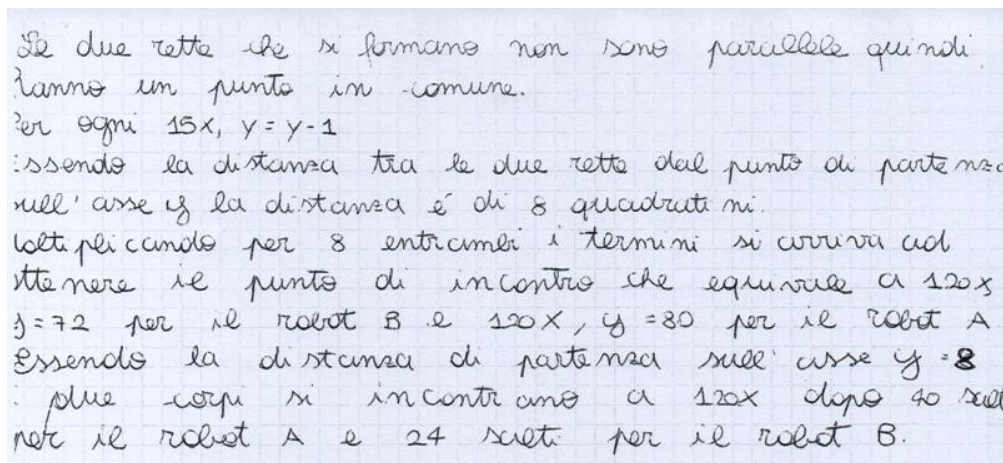 Le due rette che si formano non sono parallele quindi
hanno un punto in comune.
Per ogni 15x, y = y - 1
Essendo la distanza tra le due rette dal punto di partenza
sull' asse y la distanza é di 8 quadratini.
Moltiplicando per 8 entrambi i termini si arriva ad
ottenere il punto di incontro che equivale a 120x
y = 72 per il robot B e 120x, y = 80 per il robot A
Essendo la distanza di partenza sull' asse y = 8
due corpi si incontrano a 120x dopo 40 salti
per il robot A e 24 salti per il robot B.